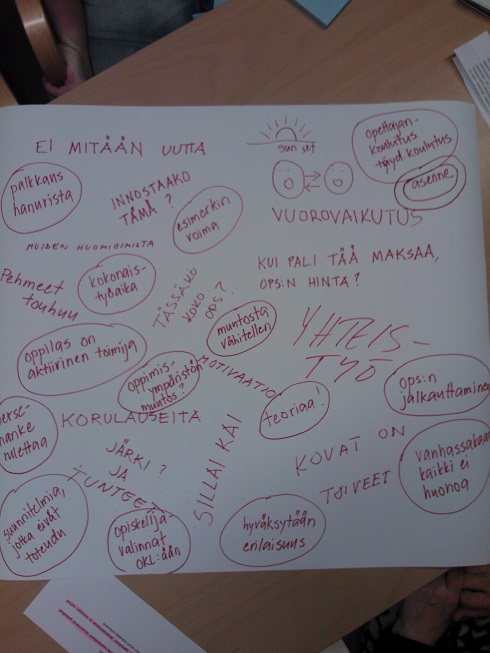 EI MITÄÄN UUTTA
sun set
opettajan-
koulutus
täyd.koulutus
asenne
palkkaus
hanurista
INNOSTAAKO
TÄMÄ?
esimerkin
voima
VUOROVAIKUTUS
MUIDEN HUOMIOIMISTA
Pehmeet
touhuu
kokonais-
työaika
TÄSSÄKÖ
KOKO
OPS?
KUI PALI TÄÄ MAKSAA,
OPS:N HINTA?
muutosta
vähitellen
YHTEIS-
TYÖ
oppilas on
aktiivinen toimija
oppimis-
ympäristön
muutos?
MOTIVAATIO
teoriaa!
ops:n
jalkauttaminen
perse-
hanke
rulettaa
KORULAUSEITA
JÄRKI?
JA
TUNTEET
SILLAI KAI
KOVAT ON
TOIVEET
vanhassakaan
kaikki ei
huonoa
suunnitelmia,
jotka eivät
toteudu
opiskelija-
valinnat
OKL:ään
hyväksytään
erilaisuus